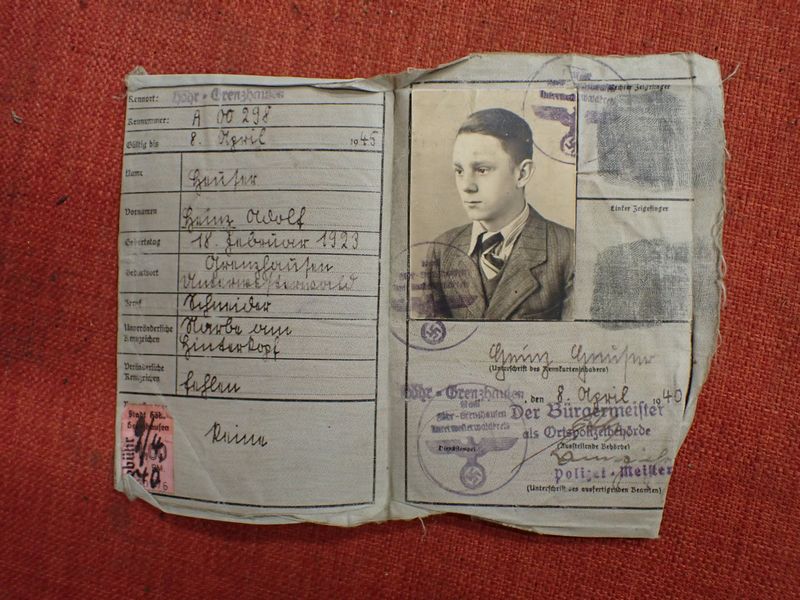 Kennort: Höhr-Grenzhausen
Kennummer: A 00298
Gültig bis 8. April 1945
Name Heuser
Vornamen Heinz Adolf
Geburtstag 18. Februar 1923
Geburtsort Grenzhausen
Unterwesterwald
Beruf Schneider
Unveränderliche Kennzeichen Narbe am
Hinterkopf
Veränderliche Kennzeichen fehlen
Keine
Stadt Höhr-
Grenzhausen
Rechter Zeigefinger
Linker Zeigefinger
Heinz Heuser
(Unterschrift des Kennkarteninhabers)
Höhr-Grenzhausen, den 8. April 1940
Der Bürgermeister
als Ortspolizeibehörde
(Ausstellende Behörde)
Dienststempel
Stadt
Höhr-Grenzhausen
Unterwesterwaldkreis
Polizei-Meister
(Unterschrift des ausfertigenden Beamten)